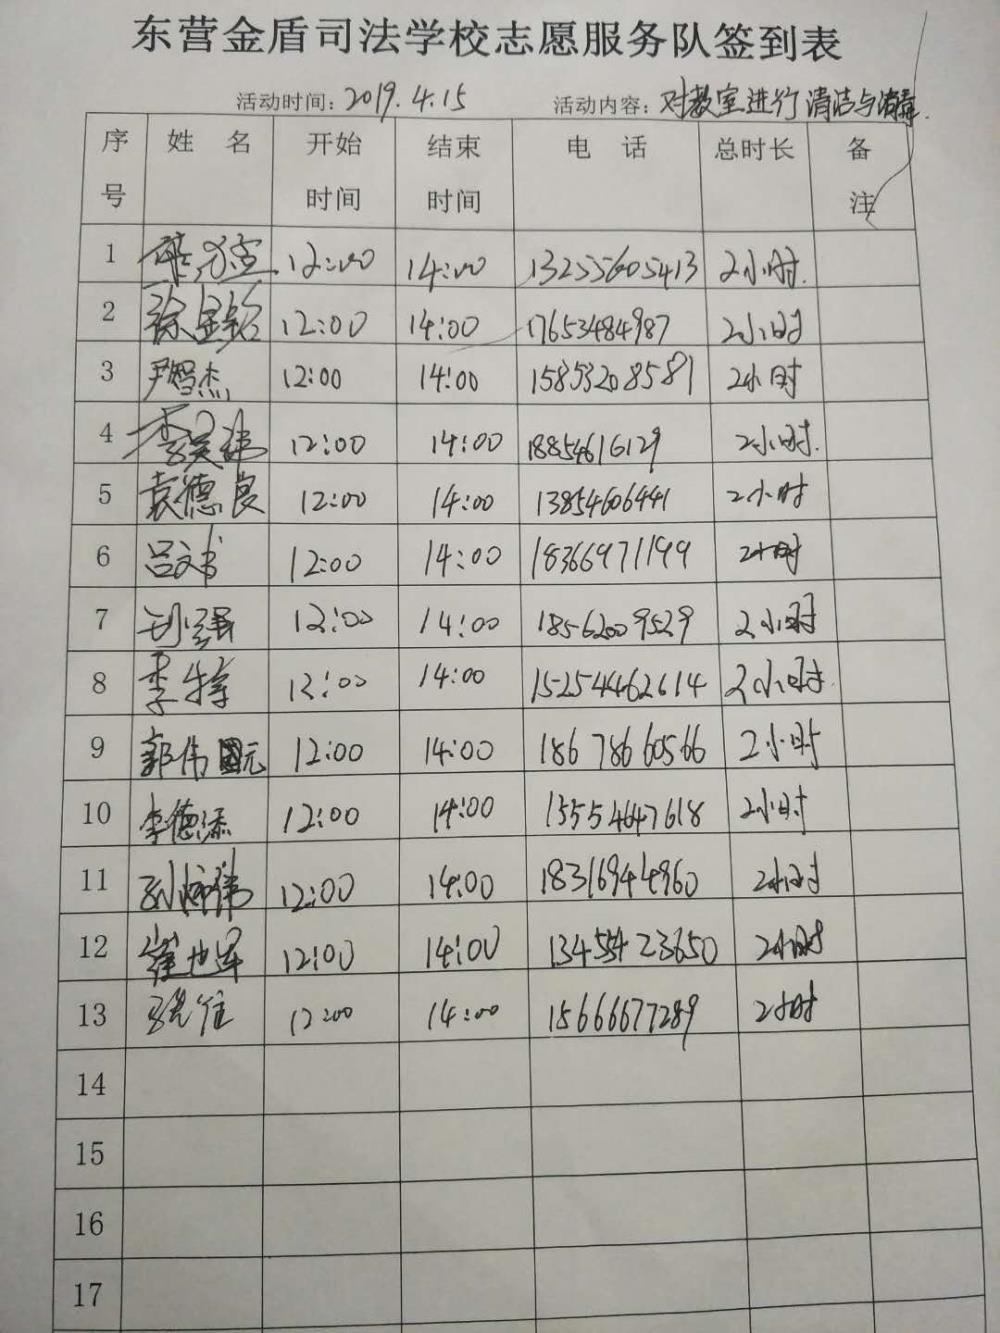 东营金盾司法学校志愿服务队签到表
活动时间：2019.4.15 活动内容：对教室进行清洁与消毒.
序号 姓 名 开始时间 结束时间 电 话 总时长 备注
1 12:00 14:00 13255605413 2小时.
2 徐 12:00 14:00 17653484987 2小时
3 尹智杰 12:00 14:00 15853208581 2小时
4 李昊 12:00 14:00 18854616129 2小时.
5 袁德良 12:00 14:00 13854606441 2小时
6 吕文书 12:00 14:00 18366971199 2小时
7 刘强 12:00 14:00 18562009529 2小时
8 李 12:00 14:00 15254462614 2小时.
9 郭伟 元 12:00 14:00 18678660566 2小时
10 李德添 12:00 14:00 15554647618 2小时
11 炳伟 12:00 14:00 18316944960 2小时
12 崔也 12:00 14:00 13455423650 2小时
13 12:00 14:00 15666677289 2小时
14
15
16
17